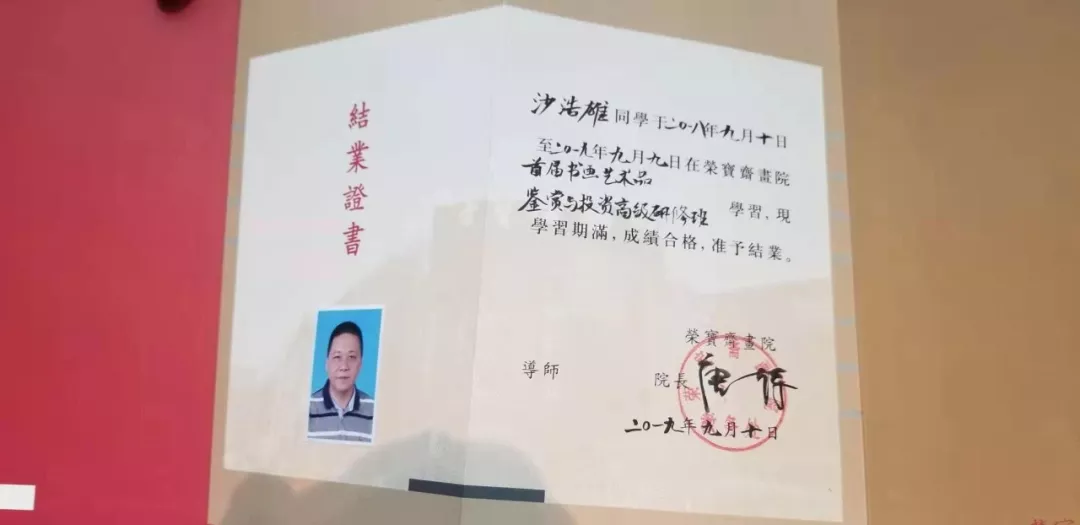 結業證書
沙浩雄同學于二〇一八年九月十日
至二〇一九年九月九日在榮寶齋畫院
首届书画艺术品
鉴赏与投资高级研修班 學習,現
學習期滿,成績合格,准予結業。
榮寶齋畫院
導師
院長
二〇一九年九月十日